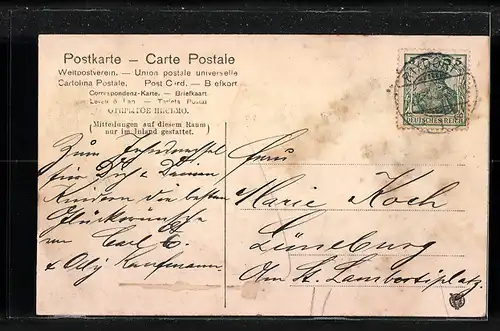 Postkarte – Carte Postale
Weltpostverein. – Union postale universelle
Cartolina Postale. Post Card. – Brefkort.
Correspondenz-Karte. – Briefkaart.
Levelező Lap. – Tarjeta Postal
ОТКРЫТОЕ ПИСЬМО.
(Mitteilungen auf diesem Raum
nur im Inland gestattet.)
DEUTSCHES REICH
Zum
für Dich & Deinen
Kindern die besten
Glückwünsche
von Carl
& Olly Kaufmann.
Frau
Marie Koch
Lüneburg
Am St. Lambertiplatz.